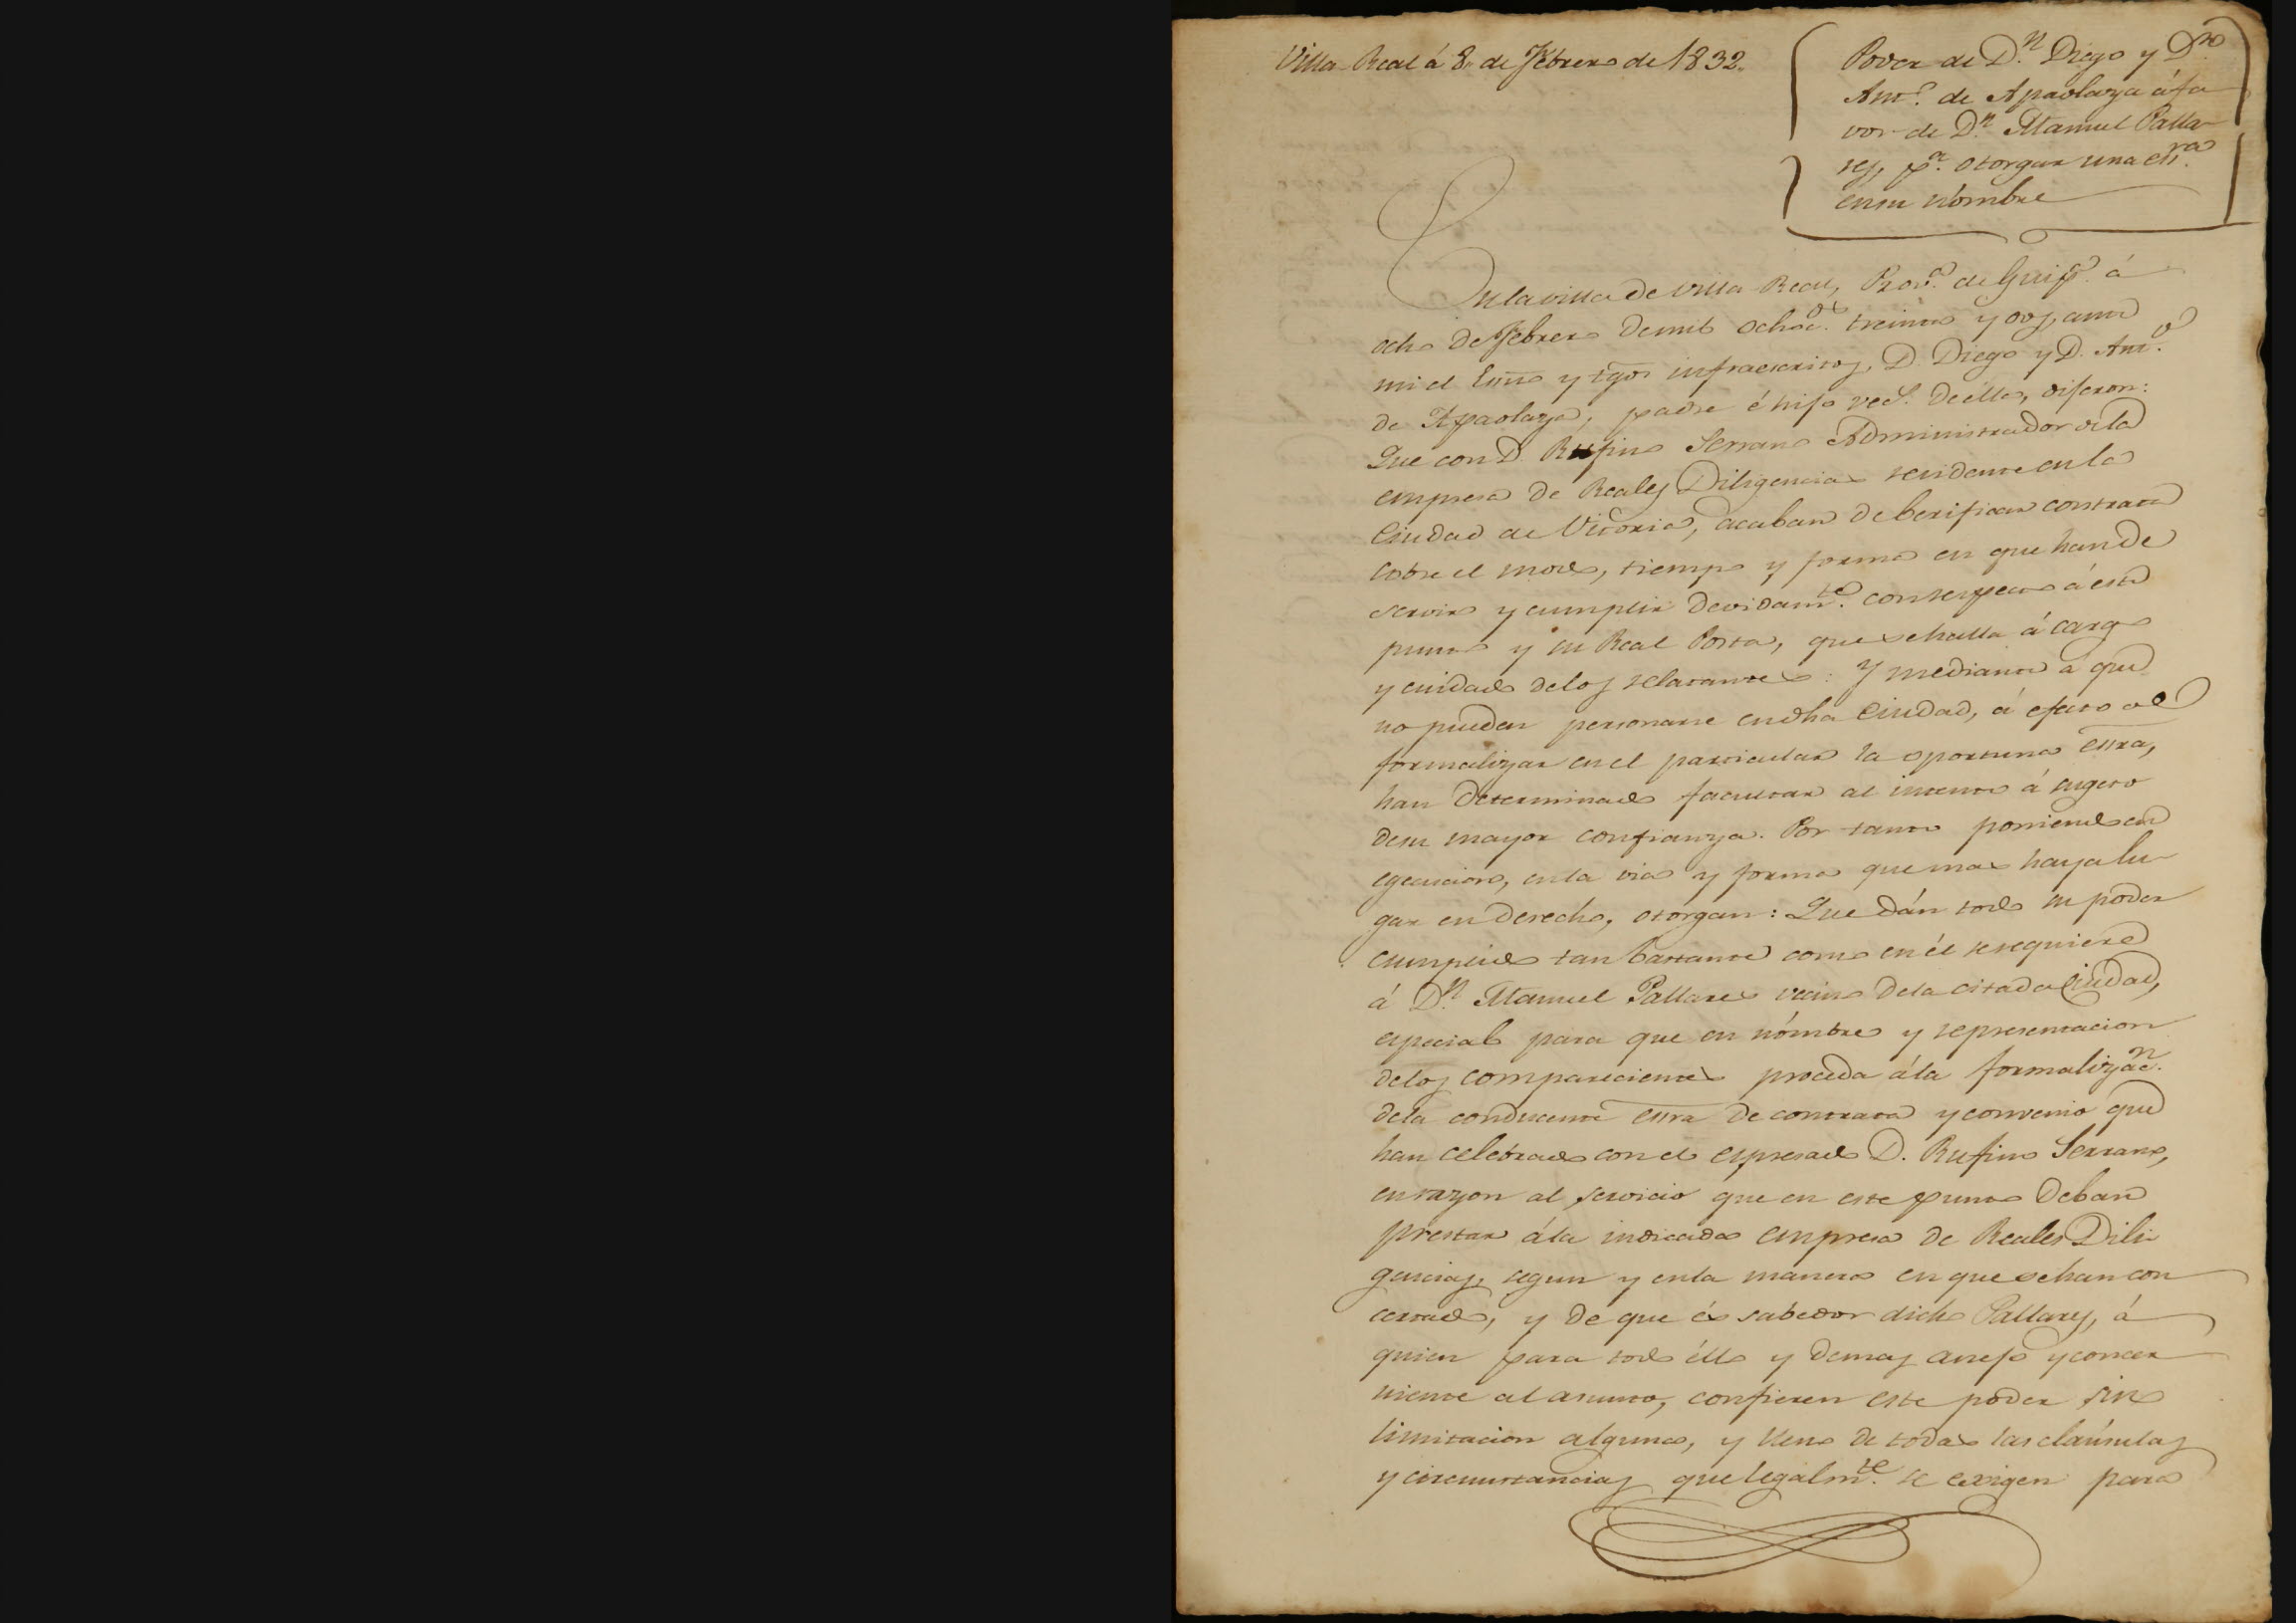 Villa Real á 8 de Febrero de 1832.
Poder de D.n Diego y D.n
Ant.o de Apaolaza á fa
vor de D.n Manuel Palla-
res, p.a otorgar una esc.ra
en su nómbre
En la villa de Villa Real, Prov.a de Guip.a á
ocho de Febrero de mil ochoc.os treinta y dos, ante
mi el Essno y tgos infraescritos, D. Diego y D. Ant.o
de Apaolaza, padre é hijo vec.s de élla, dijeron:
Que con D. Rufino Serrano Administrador de la
empresa de Reales Diligencias residente en la
Ciudad de Vitoria, acaban de berificar contrata
sobre el modo, tiempo y forma en que han de
servir y cumplir devidam.te con respecto á este
punto y su Real Posta, que se halla á cargo
y cuidado de los relatantes: Y mediante á que
no pueden personarse en dha Ciudad, á efecto de
formalizar en el particular la oportuna essra,
han determinado facultar al intento á sugeto
de su mayor confianza. Por tanto poniendo en
egecucion, en la via y forma que mas haya lu-
gar en derecho, otorgan: Que dán todo su poder
cumplido tan bastante como en él se requiere
á D.n Manuel Pallares vecino de la citada Ciudad,
especial para que en nómbre y representacion
de los comparecientes proceda á la formalizac.n
de la conducente essra de contrata y convenio que
han celebrado con el espresado D. Rufino Serrano,
en razon al servicio que en este punto deban
prestar á la indicada empresa de Reales Dili
gencias, segun y en la manera en que se han con
certado, y de que és sabedor dicho Pallares, á
quien para todo éllo y demas anejo y concer
niente al asunto, confieren este poder sin
limitacion alguna, y lleno de todas las claúsulas
y circunstancias que legalm.te se exigen para